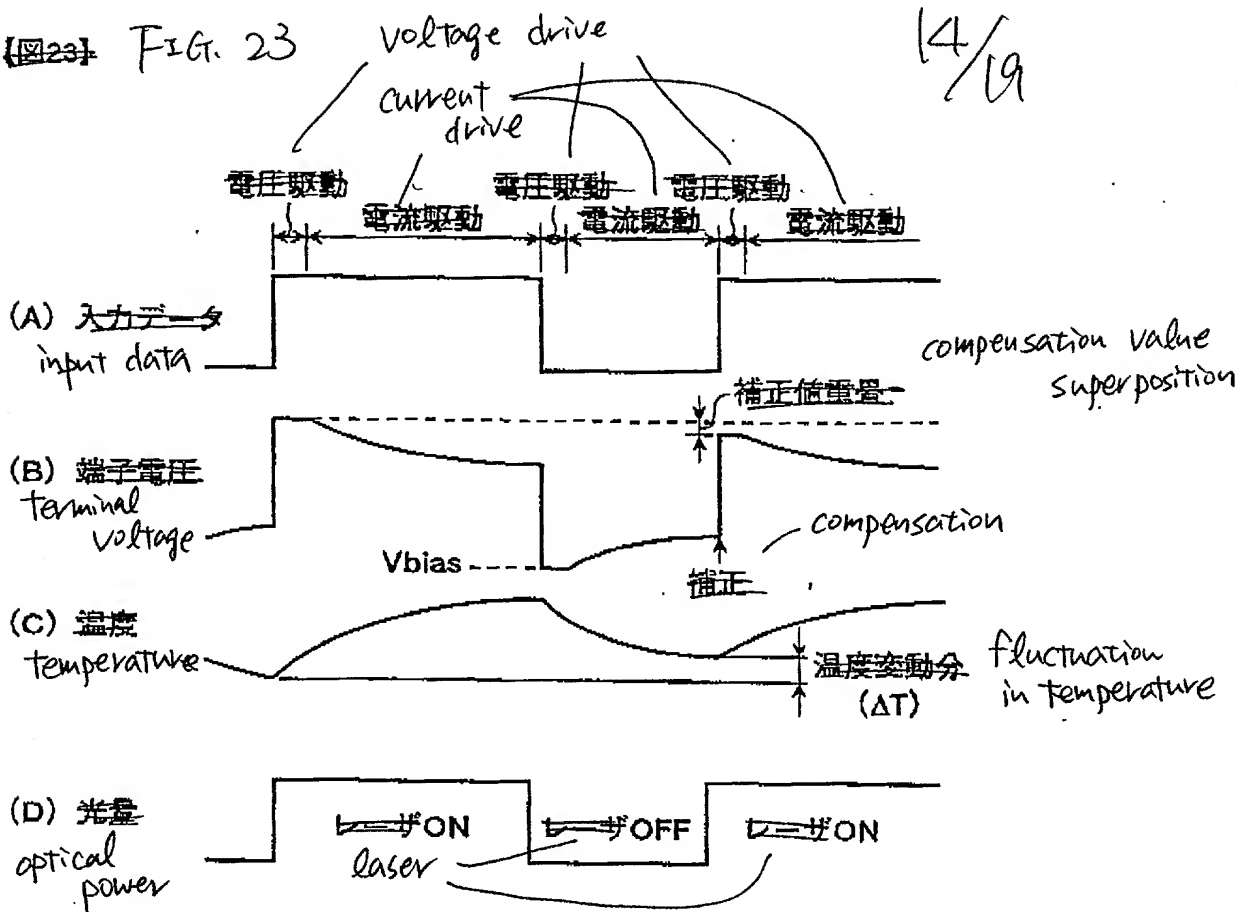 【図23】 FIG. 23 voltage drive 14/19
current
drive
電圧駆動 電圧駆動 電圧駆動
電流駆動 電流駆動 電流駆動
(A) 入力データ
input data
compensation value
superposition
補正値重畳
(B) 端子電圧
terminal
voltage
compensation
Vbias
補正
(C) 温度
temperature
温度変動分
(ΔT)
fluctuation
in temperature
(D) 光量
optical
power
レーザON レーザOFF レーザON
laser